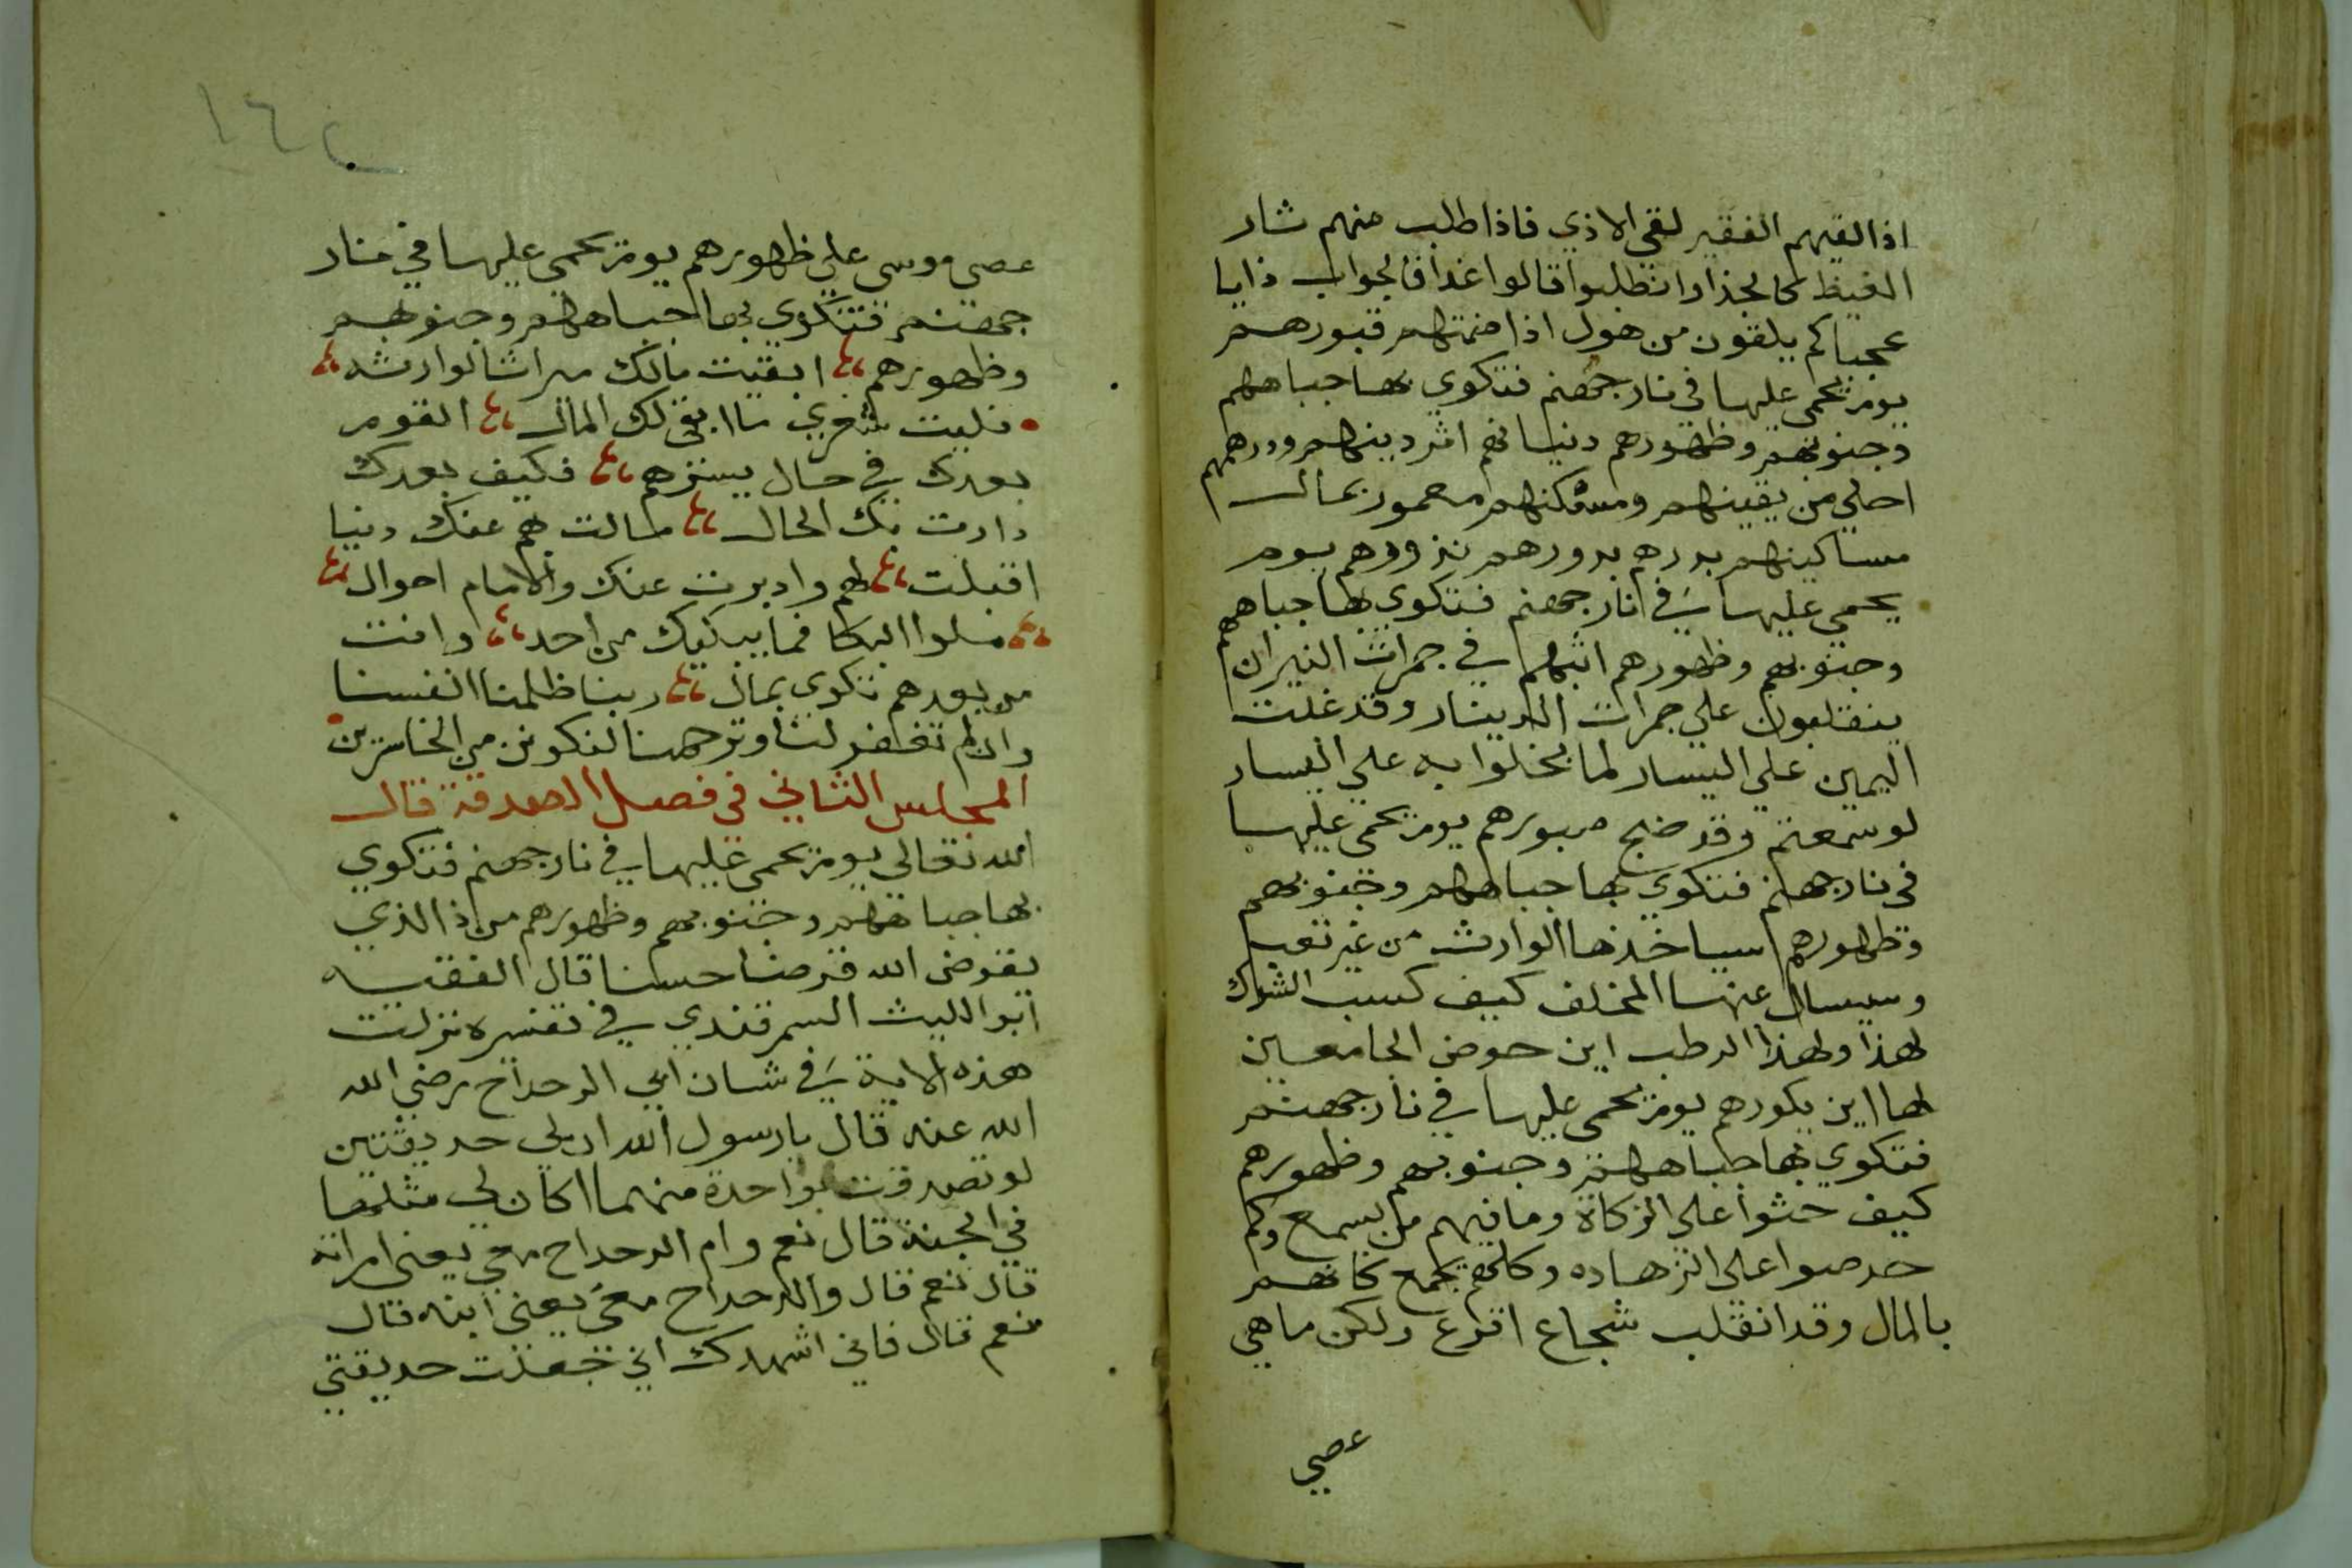 اذا لقيهم الفقير لقي الاذي فاذا طلب منهم شار
الغيظ كالجذاوا تطلبوا قالوا غدا فالجواب ذايا
عجبا كم يلقون من هول اذا ضمتهم قبورهم
يوم يحمي عليها في نار جهنم فتكوي بها جباههم
وجنوبهم وظهورهم دنياهم اثر دينهم ودرهمهم
احلي من يقينهم ومسكنهم معمور بمال
مساكينهم بدرهم بدورهم نذورهم يوم
يحمي عليها في نار جهنم فتكوي بها جباههم
وجنوبهم وظهورهم في جمرات النيران
ينقلبون علي جمرات الدينار وقد غلت
اليمين علي اليسار لما بخلوا به علي اليسار
لو سمعتم وقد ضج يوم يحمي عليها
في نار جهنم فتكوي بها جباههم وجنوبهم
وظهورهم سياخذها الوارث من غير تعب
وسيسال عنها المخلف كيف كسب الشوك
لهذا ولهذا الرطب اين حوض الجامعين
لها اين يكورهم يوم يحمي عليها في نار جهنم
فتكوي بها جباههم وجنوبهم وظهورهم
كيف حثوا علي الزكاة وما فيهم من يسمع وكم
حرصوا علي الزهاده وكلهم يجمع كانهم
بالمال وقد انقلب شجاع اقرع ولكن ما هي
عصي
١٦٢
عصي موسي علي ظهورهم يوم يحمي عليها في نار
جهنم فتكوي بها جباههم وجنوبهم
وظهورهم ابقيت مالك ميراثا لوارثه
فليت شعري ما ابقي لك المال القوم
بعدك في حال يسترهم فكيف بعدك
دارت بك الحال مالت بهم عنك دنيا
اقبلت لهم وادبرت عنك والايام احوال
ملوا البكا فما يبكيك من احد وانت
من بعدهم تكوي بمال ربنا ظلمنا انفسنا
وان لم تغفر لنا وترحمنا لنكونن من الخاسرين
المجلس الثاني في فضل الصدقة قال
الله تعالي يوم يحمي عليها في نار جهنم فتكوي
بها جباههم وجنوبهم وظهورهم من ذا الذي
يقرض الله قرضا حسنا قال الفقيه
ابو الليث السمرقندي في تفسره نزلت
هذه الاية في شان ابي الدحداح رضي الله
الله عنه قال يا رسول الله ان لي حديقتين
لو تصدقت بواحدة منهما اكان لي مثلها
في الجنة قال نعم وام الدحداح معي يعني امراته
قال نعم قال والدحداح معي يعني ابنه قال
نعم قال فاني اشهدك اني جعلت حديقتي